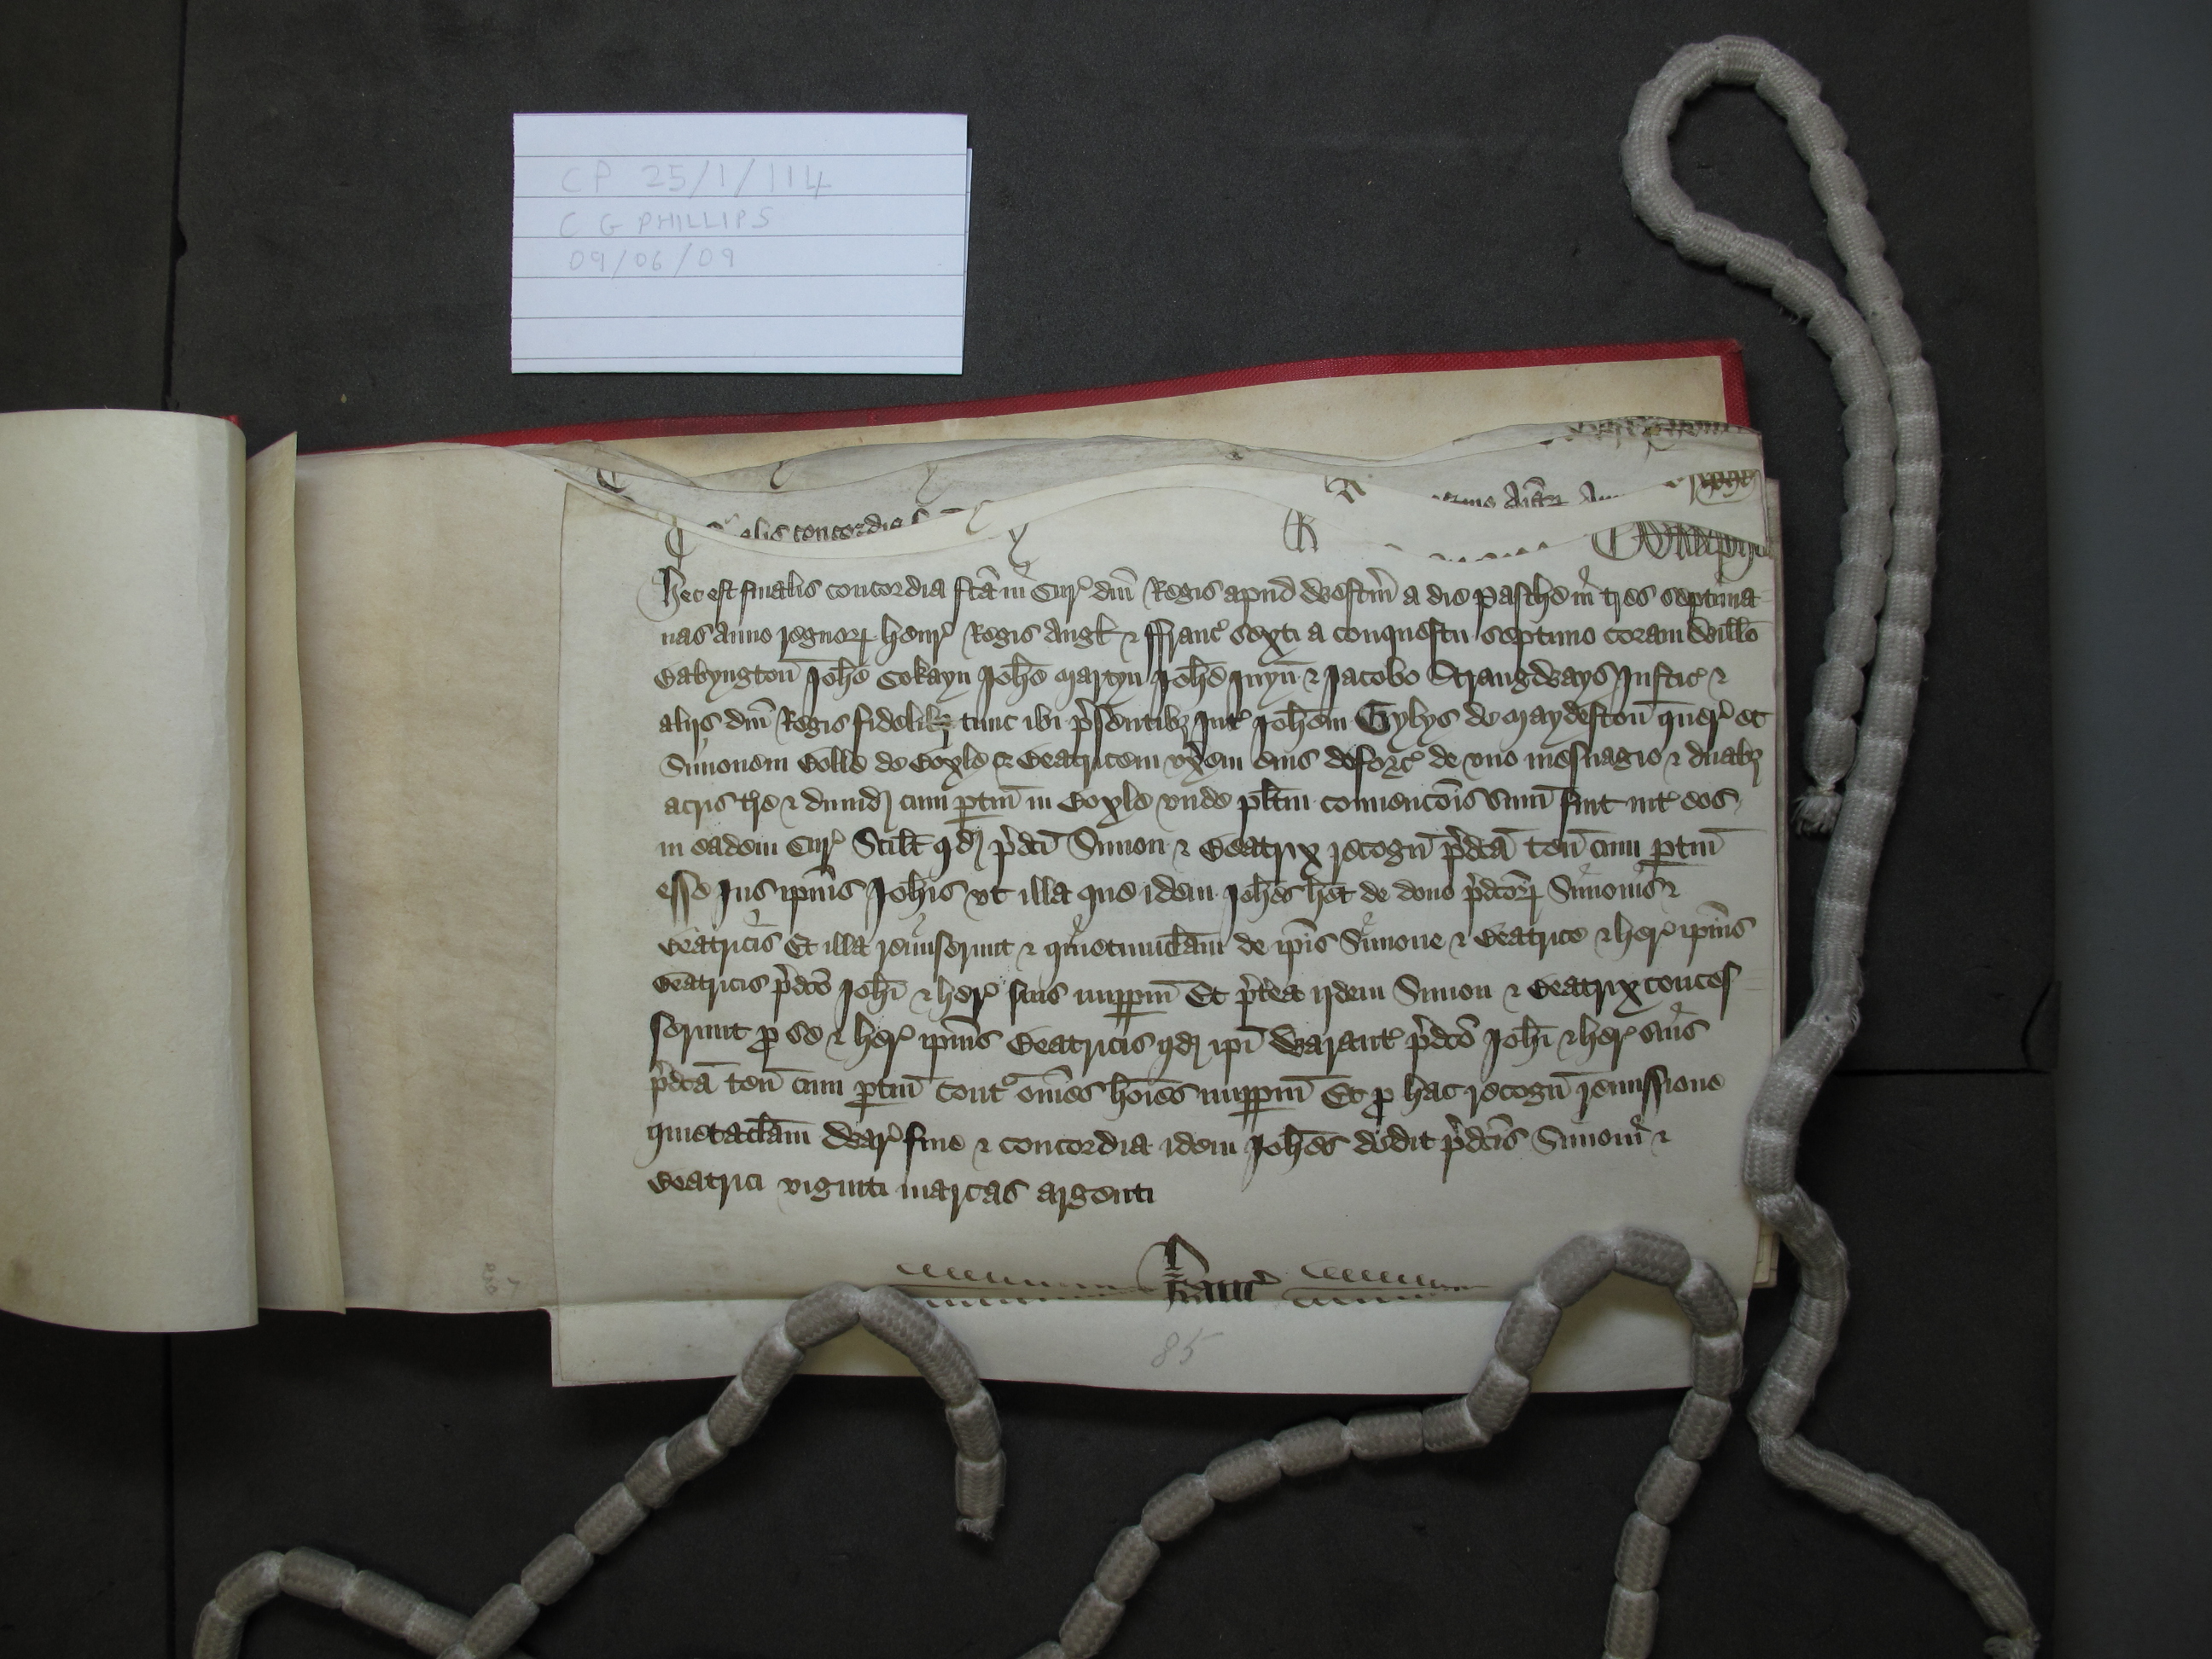 CP 25/1/114
C G PHILLIPS
09/06/09
alis concordia
Hec est finalis concordia fcā in Cur' dn̄i Regis apud Westm̄ a die Pasche in tres septima
nas anno regnorꝝ Henr' Regis Angl' & ffranc' sexti a conquestu septimo coram Will̄o
Babyngton̄ Joh̄e Cokayn Joh̄e Martyn Joh̄e Juyn̄ & Jacobo Strangways Justic' &
alijs dn̄i Regis fidelibꝫ tunc ibi p̄sentibꝫ Int' Joh̄em Gylys de Maydeston̄ quer' et
Simonem Bolle de Boxle & Beatricem vx̄em eius deforc' de vno mesuagio & duabꝫ
acris tr̄e & dimid' cum ptin̄ in Boxle vnde pl̄itm convencōis sum̄ fuit int' eos
in eadem Cur' Scilt qd' p̄dc̄i Simon & Beatrix recogn̄ p̄dc̄a ten̄ cum ptin̄
esse Jus ip̄ius Joh̄is vt illa que idem Joh̄es h̄et de dono p̄dc̄orꝝ Simonis &
Beatricis Et illa remiserunt & quietumclam̄ de ip̄is Simone & Beatrice & her' ip̄ius
Beatricis p̄dc̄o Joh̄i & her' suis imppm̄ Et p̄terea ijdem Simon & Beatrix conces
serunt p se & her' ip̄ius Beatricis qd' ip̄i Warant' p̄dc̄o Joh̄i & her' suis
p̄dc̄a ten̄ cum ptin̄ cont' om̄es hoīes imppm̄ Et p hac recogn̄ remissione
quietaclam̄ War' fine & concordia idem Joh̄es dedit p̄dc̄is Simoni &
Beatrici viginti marcas argenti
Kanc'
85